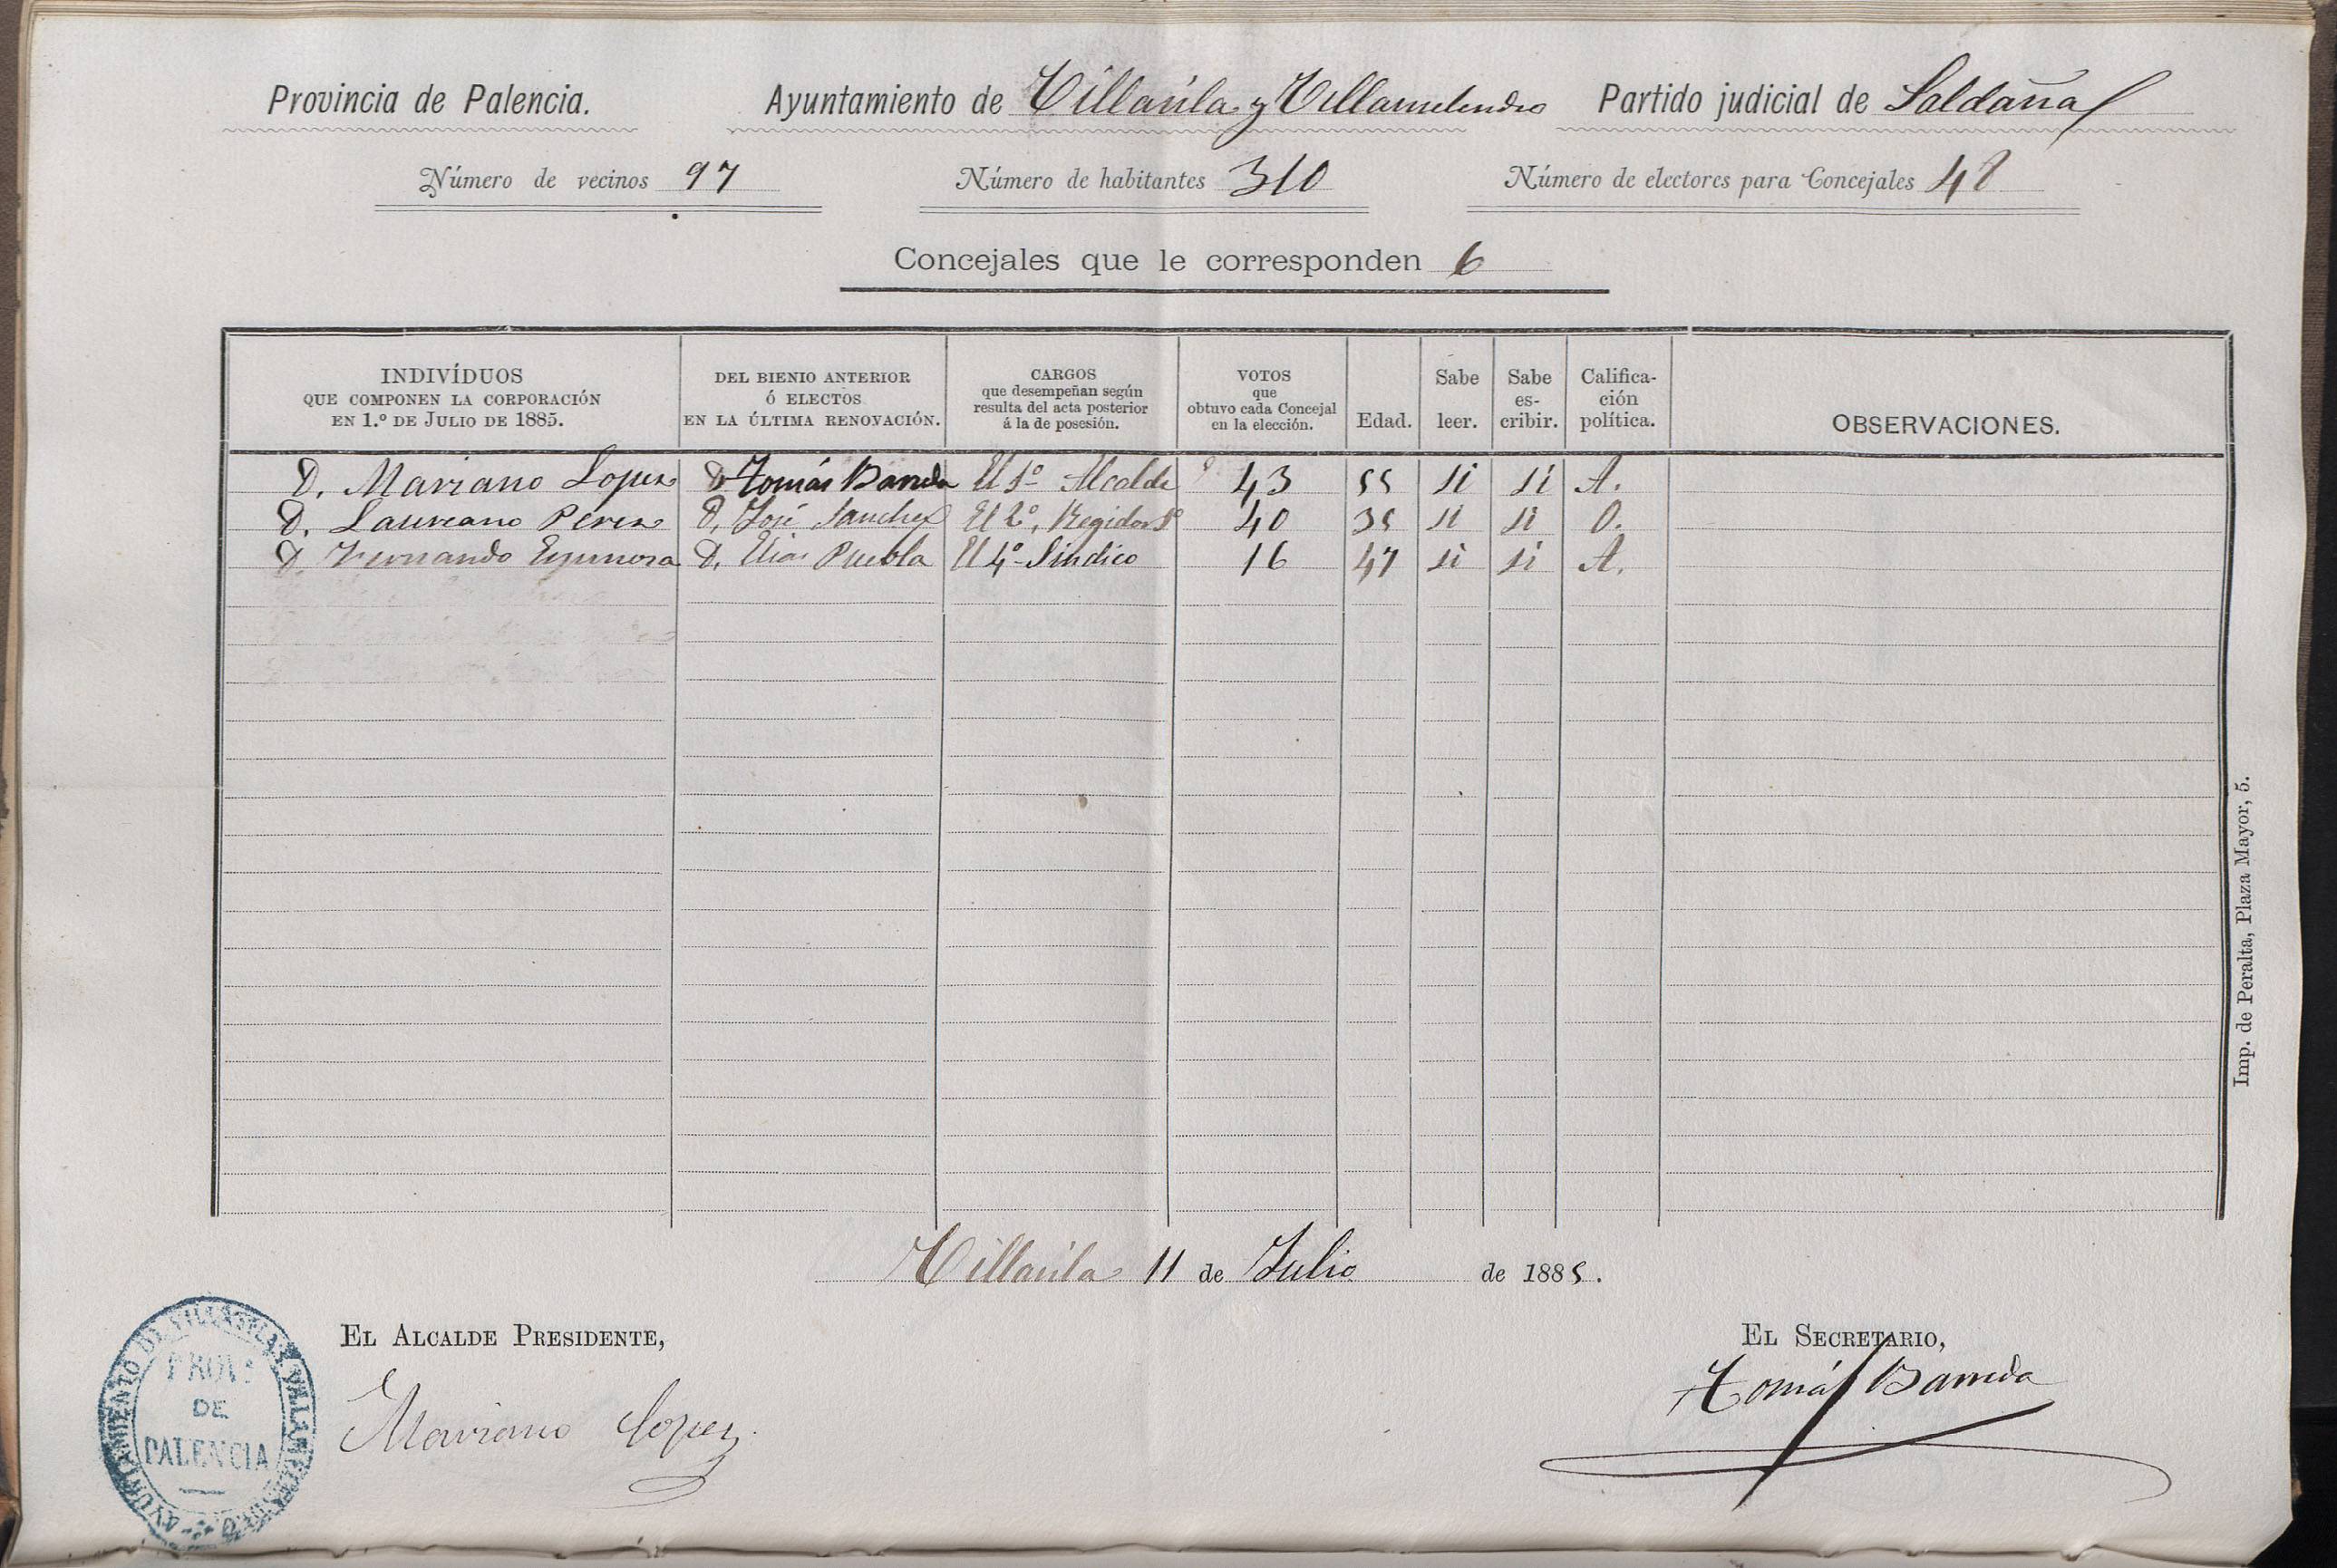 Provincia de Palencia. Ayuntamiento de Villasila y Villamelendro Partido judicial de Saldaña
Número de vecinos 97 Número de habitantes 310 Número de electores para Concejales 48
Concejales que le corresponden 6
INDIVÍDUOS QUE COMPONEN LA CORPORACIÓN EN 1.º DE JULIO DE 1885. DEL BIENIO ANTERIOR Ó ELECTOS EN LA ÚLTIMA RENOVACIÓN. CARGOS que desempeñan según resulta del acta posterior á la de posesión. VOTOS que obtuvo cada Concejal en la elección. Edad. Sabe leer. Sabe es- cribir. Califica- ción política. OBSERVACIONES.
D. Mariano Lopez D. Tomás Barreda El 1º Alcalde 43 55 si si A.
D. Laureano Perez D. José Sanchez El 2º, Regidor 1º 40 35 si si O.
D. Fernando Espinosa D. Elias Puebla El 4º Sindico 16 47 si si A.
Villasila 11 de Julio de 1885.
EL ALCALDE PRESIDENTE,
Mariano Lopez
EL SECRETARIO,
Tomás Barreda
PROV.ª
DE
PALENCIA
Imp. de Peralta, Plaza Mayor, 5.